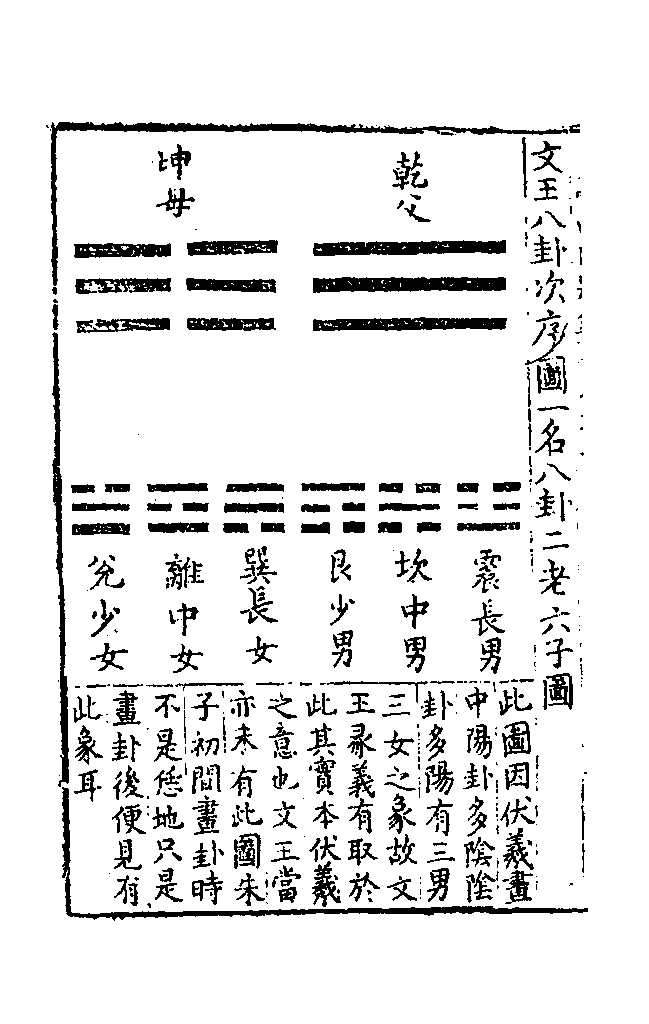 文王八卦次序圖一名八卦二老六子圖
乾父
坤母
震長男
坎中男
艮少男
巽長女
離中女
兌少女
此圖因伏羲畫
中陽卦多陰陰
卦多陽有三男
三女之象故文
王彖義有取於
此其實本伏羲
之意也文王當
亦未有此圖朱
子初間畫卦時
不是恁地只是
畫卦後便見有
此象耳